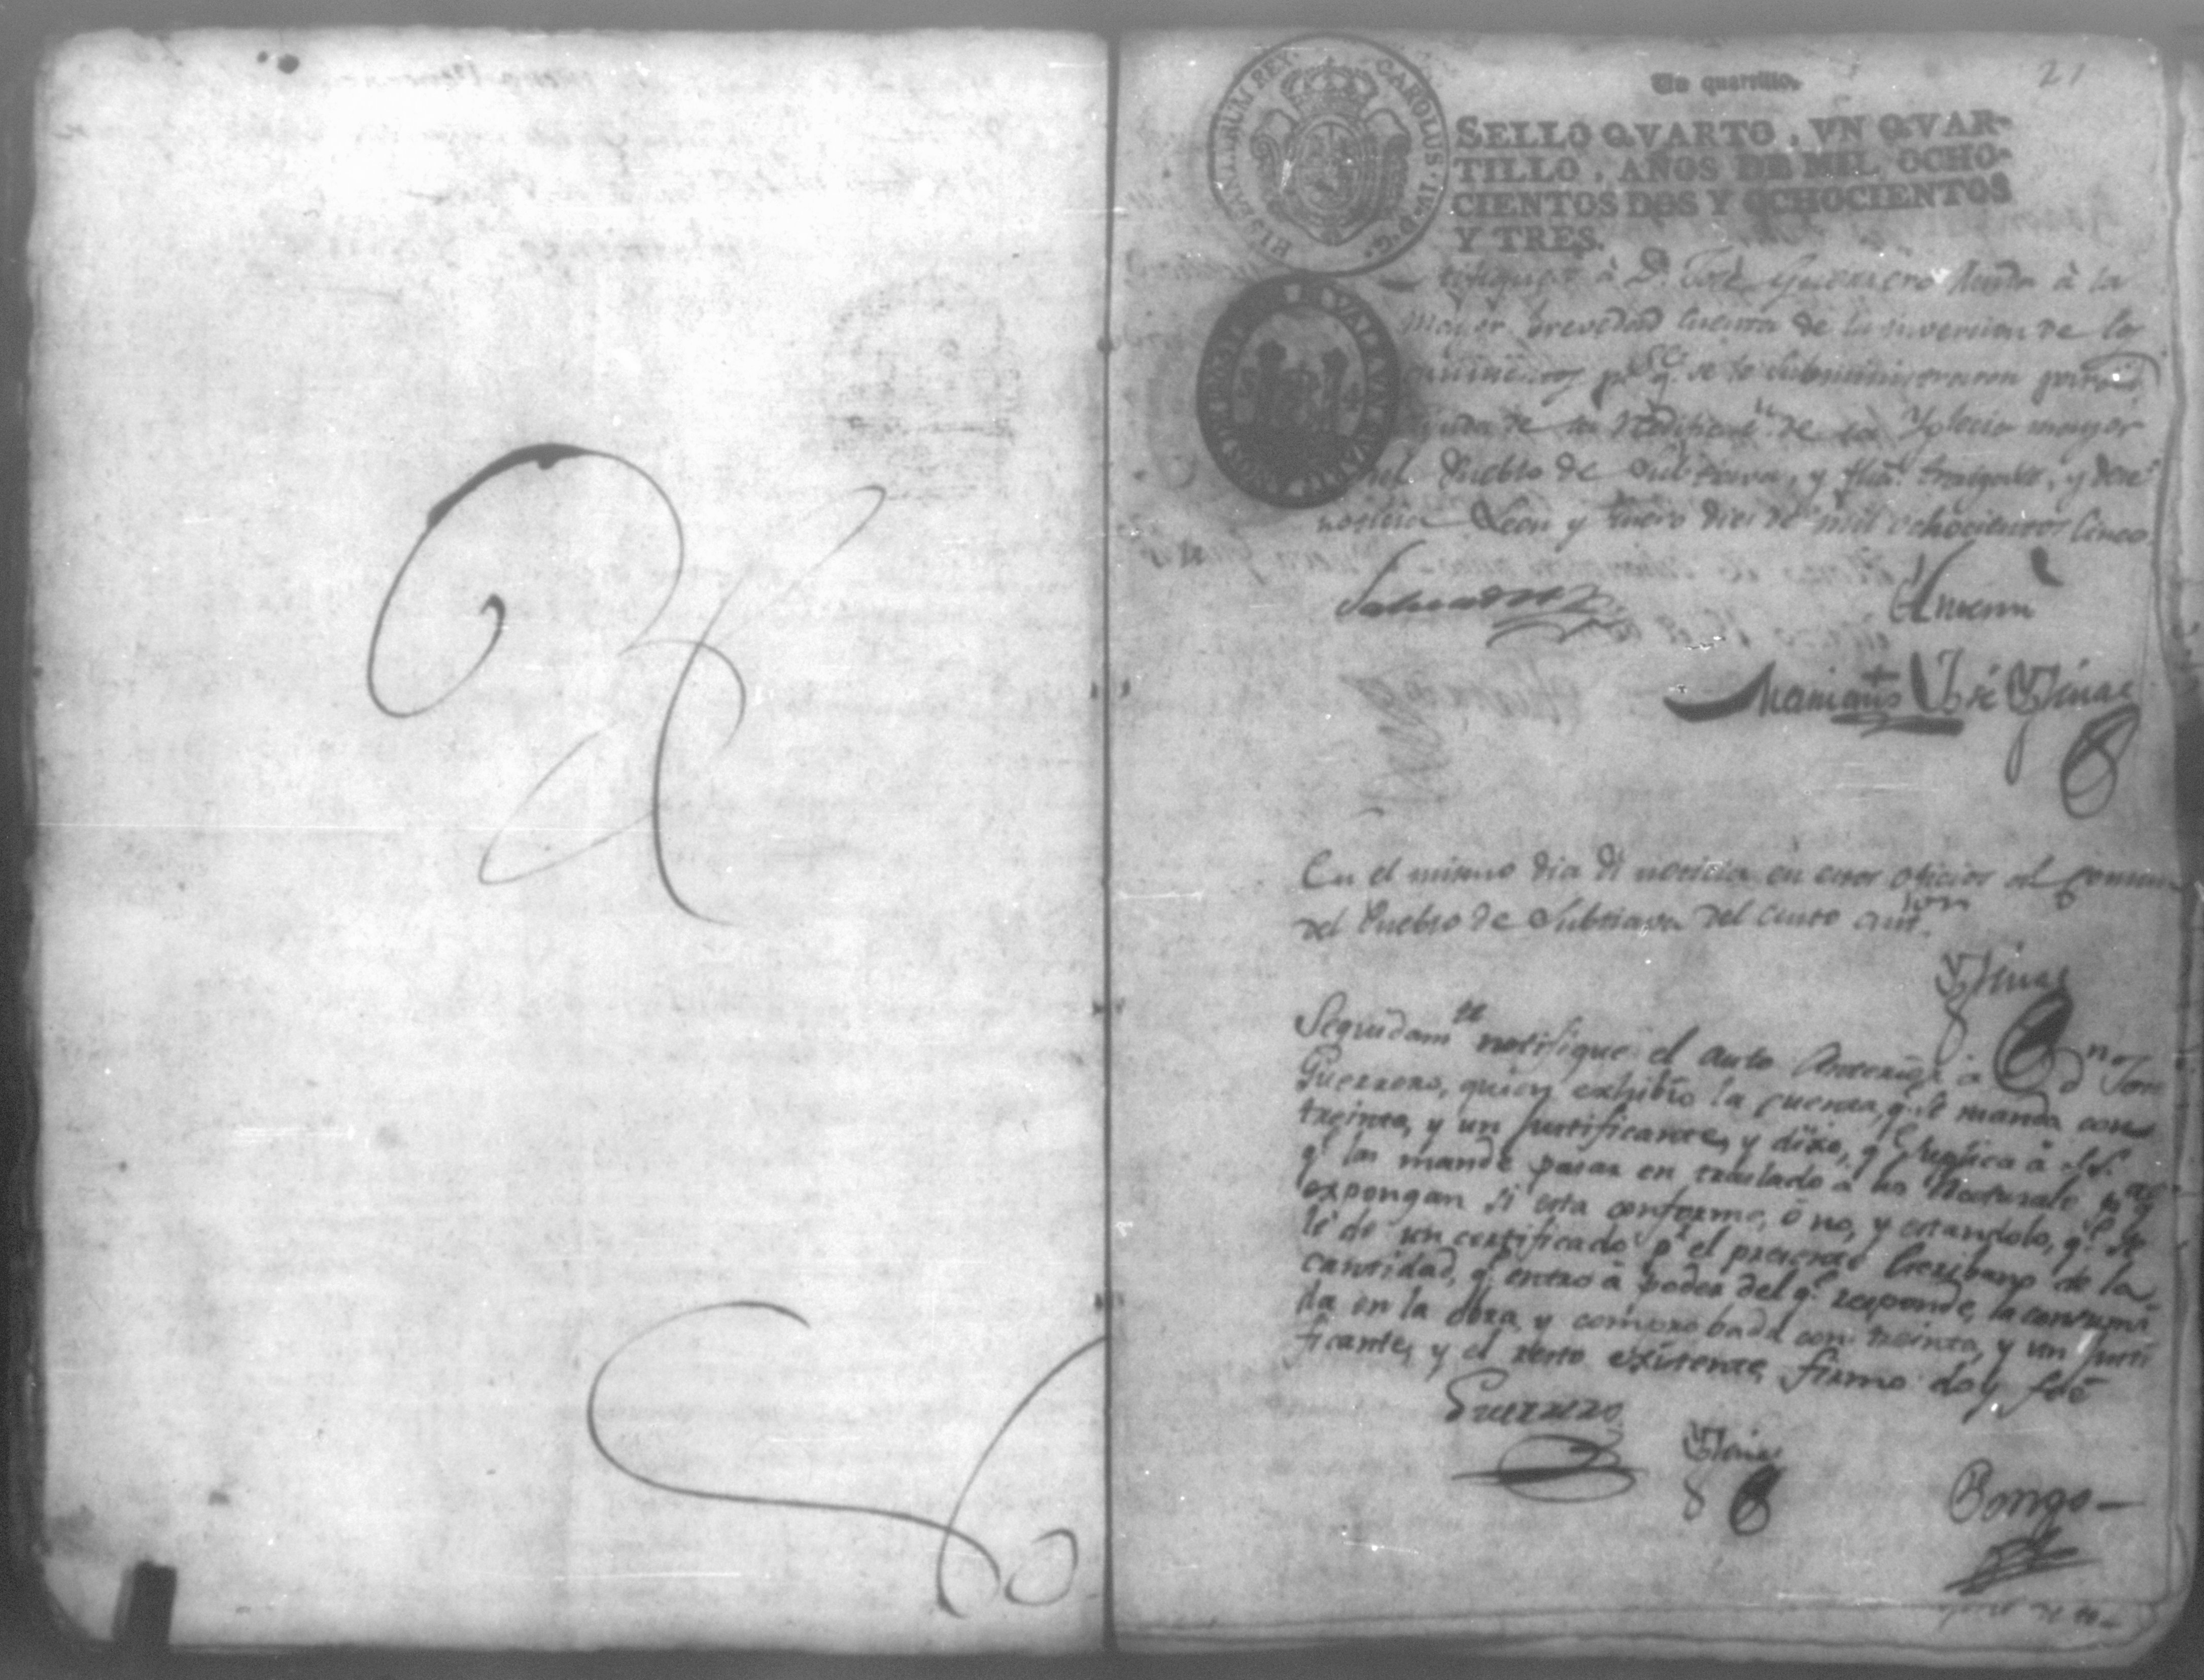 21
Un quartillo.
HISPANIARUM REX CAROLUS·IV·D·G·
SELLO QVARTO, VN QVAR-
TILLO, AÑOS DE MIL OCHO-
CIENTOS DOS Y OCHOCIENTOS
Y TRES.
à D.n José Guerrero rinda à la
mayor brevedad cuenta de la inversion de lo
q.e se le subministraron para
de la Redificac.n de la Yglecia mayor
del Pueblo de Subtiava, y
noticia Leon y Enero dies de mil ochocientos cinco
Salvador
Antemi
Mariano José
En el mismo dia di noticia en esos oficios al comun
del Pueblo de Subtiava del auto ant.rior
Seguidam.te notifiqué el auto Anterior à d.n Jose
Guerrero, quien exhibio la cuenta, q.e se manda con
treinta, y un justificantes, y dixo, q.e suplica à S.S.
q.e las mande pasar en traslado à los Naturales p.a q.e
expongan si esta conforme, ò no, y estandolo, q.e se
le dé un certificado p.r el presente Escribano de la
cantidad, q.e entro à poder del q.e responde, la consumi
da en la obra, y comprobada con treinta, y un justi
ficantes, y el resto existente, firmo doy feé
Guerrero
Bongo